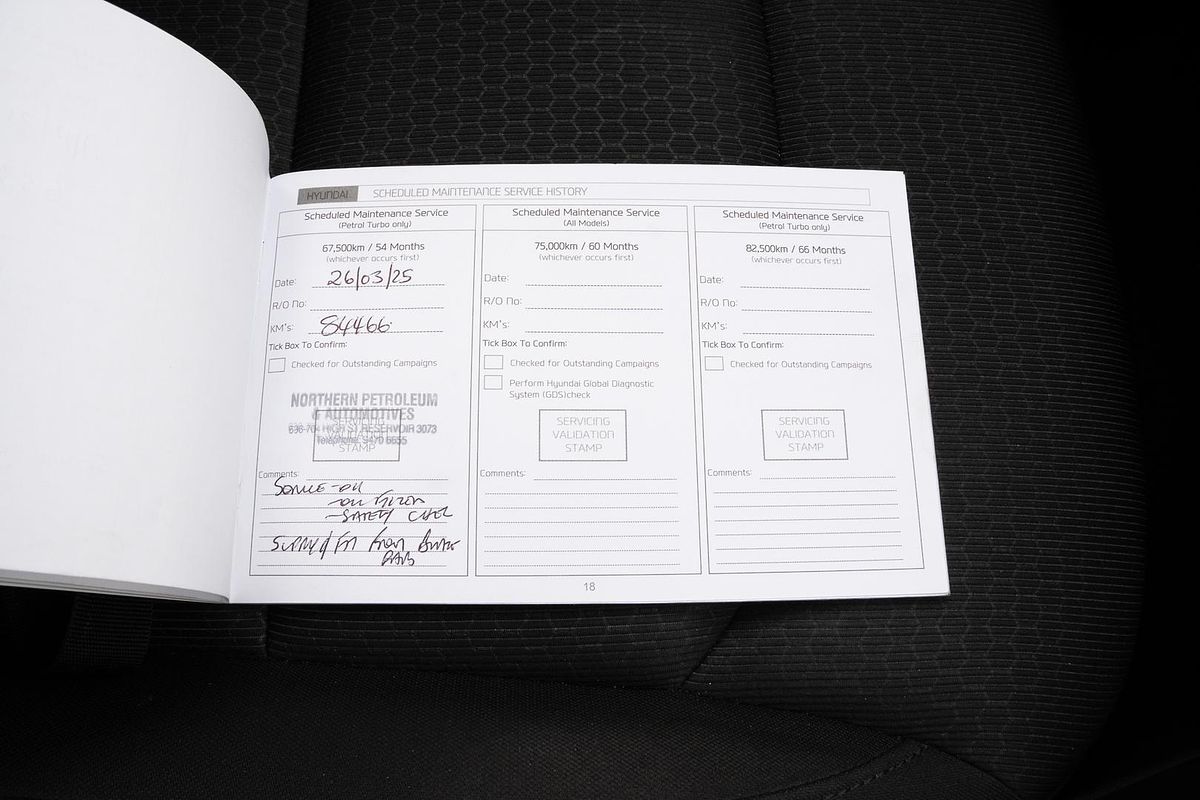 HYUNDAI SCHEDULED MAINTENANCE SERVICE HISTORY
Scheduled Maintenance Service
(Petrol Turbo only)
67,500km / 54 Months
(whichever occurs first)
Date: 26/03/25
R/O No:
KM's: 84466
Tick Box To Confirm:
Checked for Outstanding Campaigns
NORTHERN PETROLEUM
& AUTOMOTIVES
696-704 HIGH ST RESERVOIR 3073
Telephone: 9470 6655
SERVICING
VALIDATION
STAMP
Comments:
SERVICE - OIL
- OIL FILTER
- SAFETY CHECK
SUPPLY & FIT FRONT BRAKE
PADS
Scheduled Maintenance Service
(All Models)
75,000km / 60 Months
(whichever occurs first)
Date:
R/O No:
KM's:
Tick Box To Confirm:
Checked for Outstanding Campaigns
Perform Hyundai Global Diagnostic
System (GDS)check
SERVICING
VALIDATION
STAMP
Comments:
Scheduled Maintenance Service
(Petrol Turbo only)
82,500km / 66 Months
(whichever occurs first)
Date:
R/O No:
KM's:
Tick Box To Confirm:
Checked for Outstanding Campaigns
SERVICING
VALIDATION
STAMP
Comments:
18